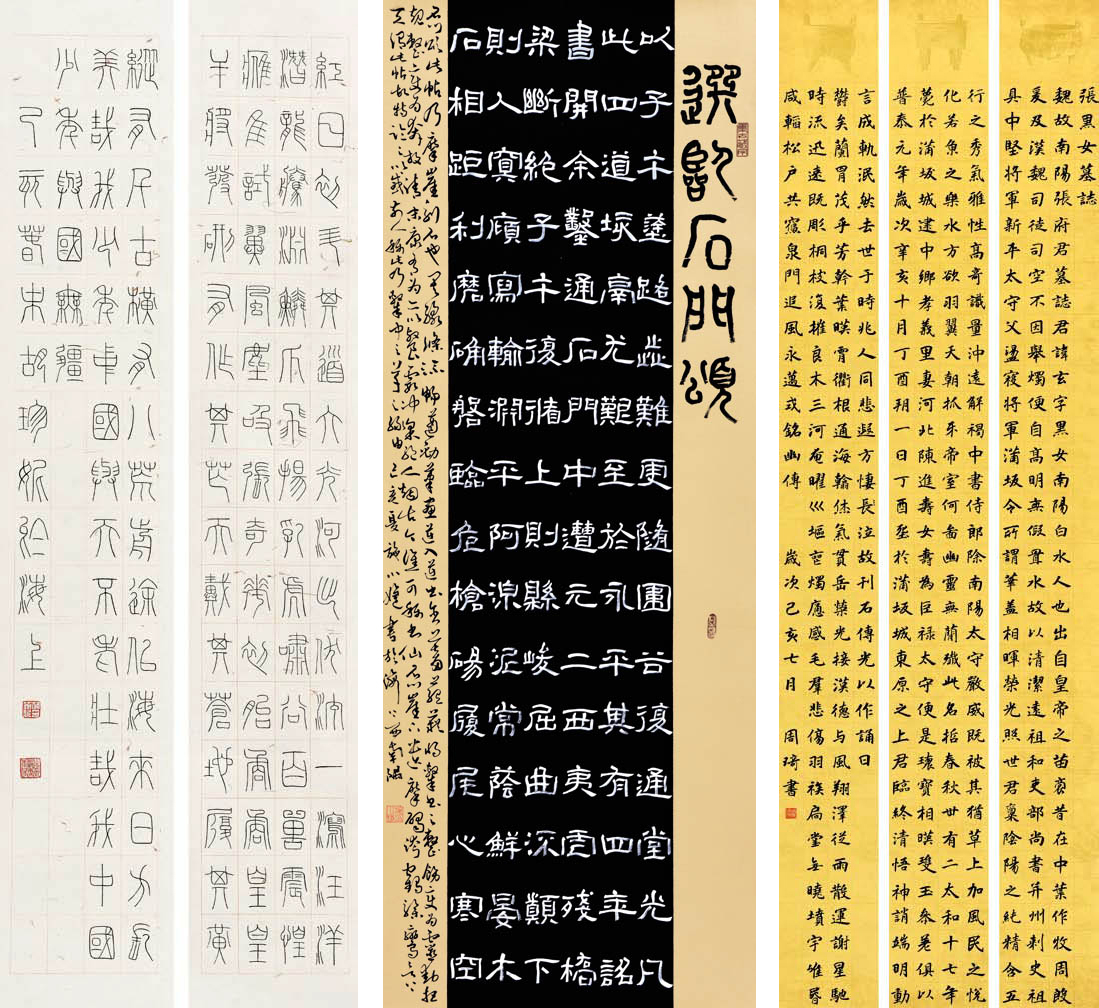 張黑女墓誌
魏故南陽張府君墓誌君諱玄字黑女南陽白水人也出自皇帝之苗裔昔在中葉作牧周殷
爰及漢魏司徒司空不因舉燭便自高明無假置水故以清潔遠祖和吏部尚書并州刺史祖
具中堅將軍新平太守父盪寇將軍蒲坂令所謂華蓋相暉榮光照世君稟陰陽之純精含五
行之秀氣雅性高奇識量沖遠解褐中書侍郎除南陽太守嚴威既被其猶草上加風民之悅
化若魚之樂水方欲羽翼天朝抓牙帝室何啚幽靈無蘭殲此名哲春秋卅有二太和十七年
薨於蒲坂城建中鄉孝義里妻河北陳進壽女壽為巨祿太守便是瓌寶相暎雙玉參差俱以
普泰元年歲次辛亥十月丁酉朔一日丁酉丕於蒲坂城東原之上君臨終清悟神誚端明動
言成軌泯然去世于時兆人同悲遐方悽長泣故刊石傳光以作誦曰
欝矣蘭冑茂乎芳幹葉暎霄衢根通海翰休氣貫岳榮光接漢德与風翔澤從雨散運謝星馳
時流迅速既彫桐枝復摧良木三河奄曜巛塸空燭痛感毛羣悲傷羽族扃堂無曉墳宇唯昏
咸輀松戶共寔泉門追風永邁式銘幽傳 歲次己亥七月 周琦書
選臨石門頌
以子午塗路歮難更隨圍谷復通堂光凡
此四道垓鬲尤艱至於永平其有四年詔
書開余鑿通石門中遭元二西夷虐殘橋
梁斷絕子午復循上則縣峻屈曲流顛下
則人寞傾寫輸淵平阿湶泥常蔭鮮晏木
石相距利磨确磐臨危槍碭履尾心寒空
紅日初升其道大光河出伏流一瀉汪洋
潛龍騰淵鱗爪飛揚乳虎嘯谷百獸震惶
鷹隼試翼風塵吸張奇花初胎矞矞皇皇
干將發硎有作其芒天戴其蒼地履其黃
縱有千古橫有八荒前途似海來日方長
美哉我少年中國與天不老壯哉我中國
少年與國無疆
己亥春末胡珍妮於海上